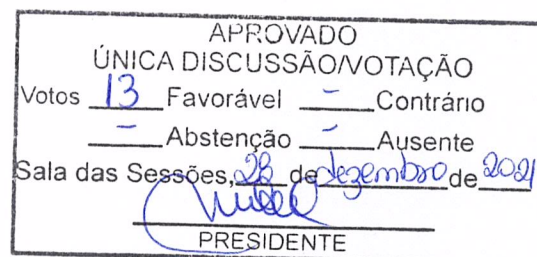 APROVADO
ÚNICA DISCUSSÃO/VOTAÇÃO
Votos 13 Favorável - Contrário
- Abstenção - Ausente
Sala das Sessões, de dezembro de 2021
PRESIDENTE